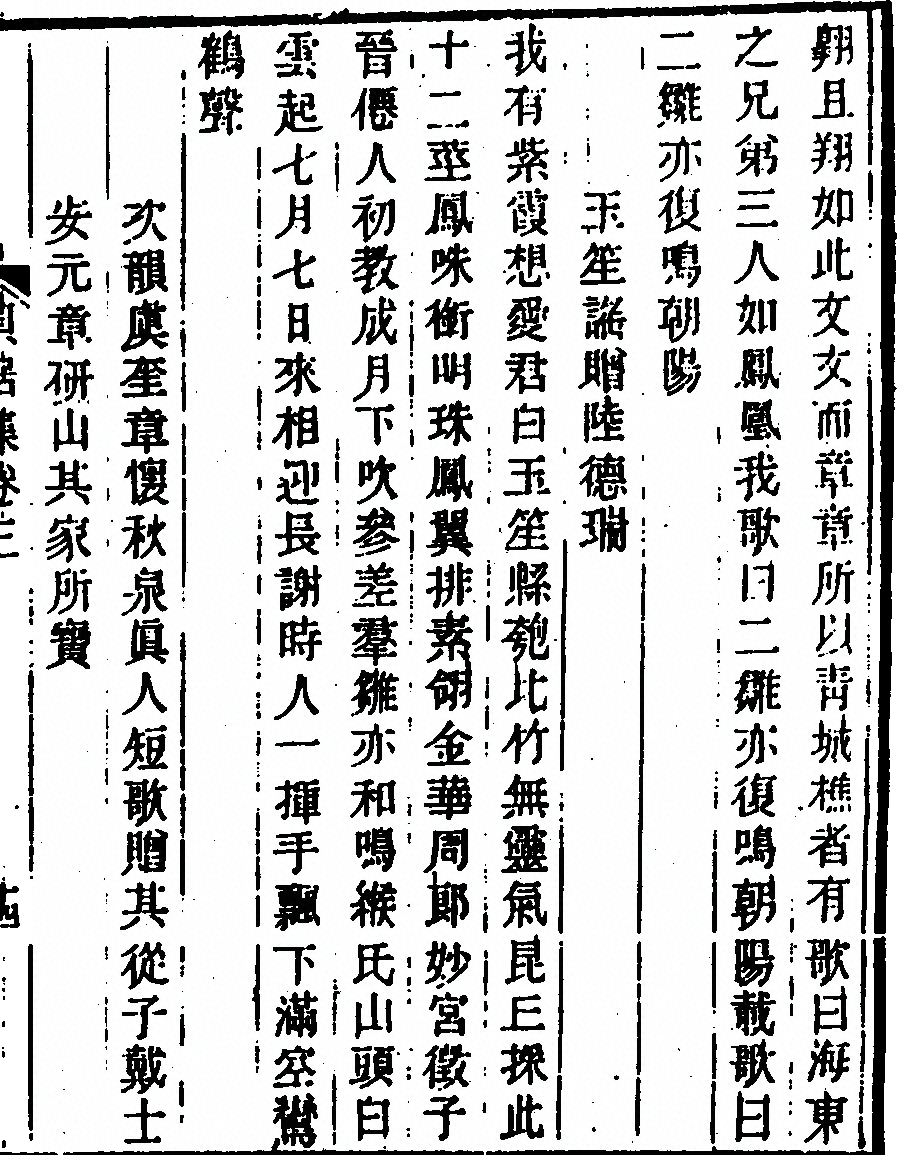 翱且翔如此文文而章章所以靑城樵者有歌曰海東
之兄弟三人如鳳凰我歌曰二雛亦復鳴朝陽載歌曰
二雛亦復鳴朝陽
玉笙謡贈陸德瑚
我有紫霞想愛君白玉笙縣匏比竹無靈氣昆丘採此
十二莖鳳咮銜明珠鳳翼排素翎金華周郎妙宮徵子
晉僊人初教成月下吹參差羣雛亦和鳴緱氏山頭白
雲起七月七日來相迎長謝時人一揮手飄下滿空鸞
鶴聲
次韻虞至章懷秋泉眞人短歌贈其從子戴士
安元章研山其家所寶
貞居集卷三
十四